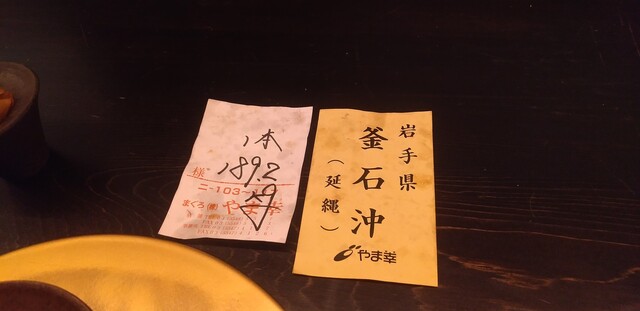 1本
様
189.2
ニ-103-
まぐろ(株)やま幸
岩手県
釜石沖
(延縄)
やま幸